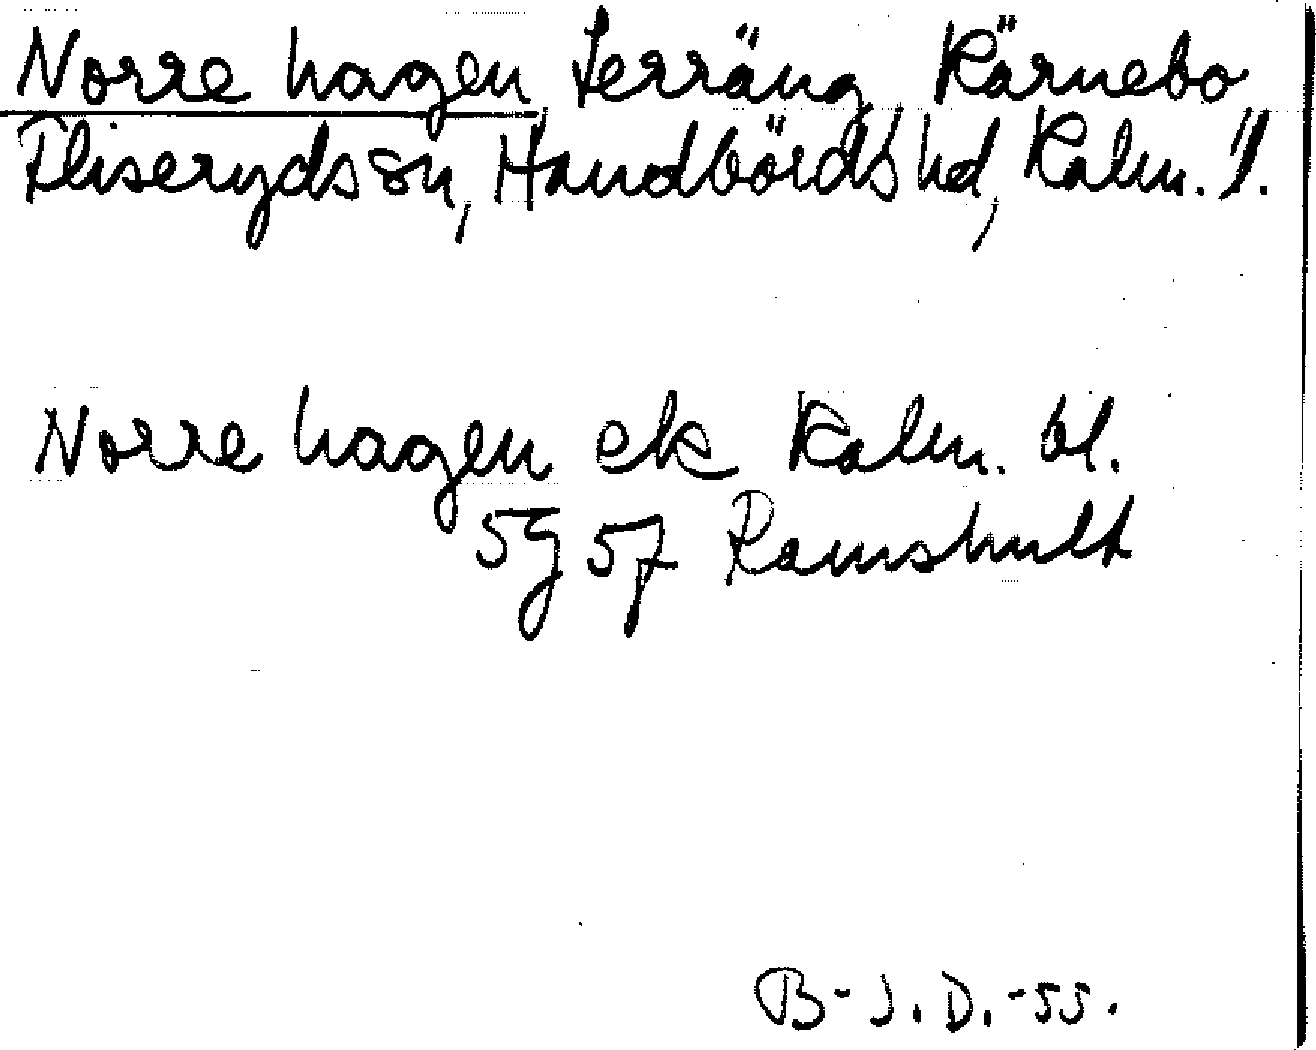 Norre hagen Terräng Kärnebo
Fliseryds sn, Handbörds hd, Kalm. l.
Norre hagen ek Kalm. bl.
5g 5f Ramshult
B-J.D.-55.